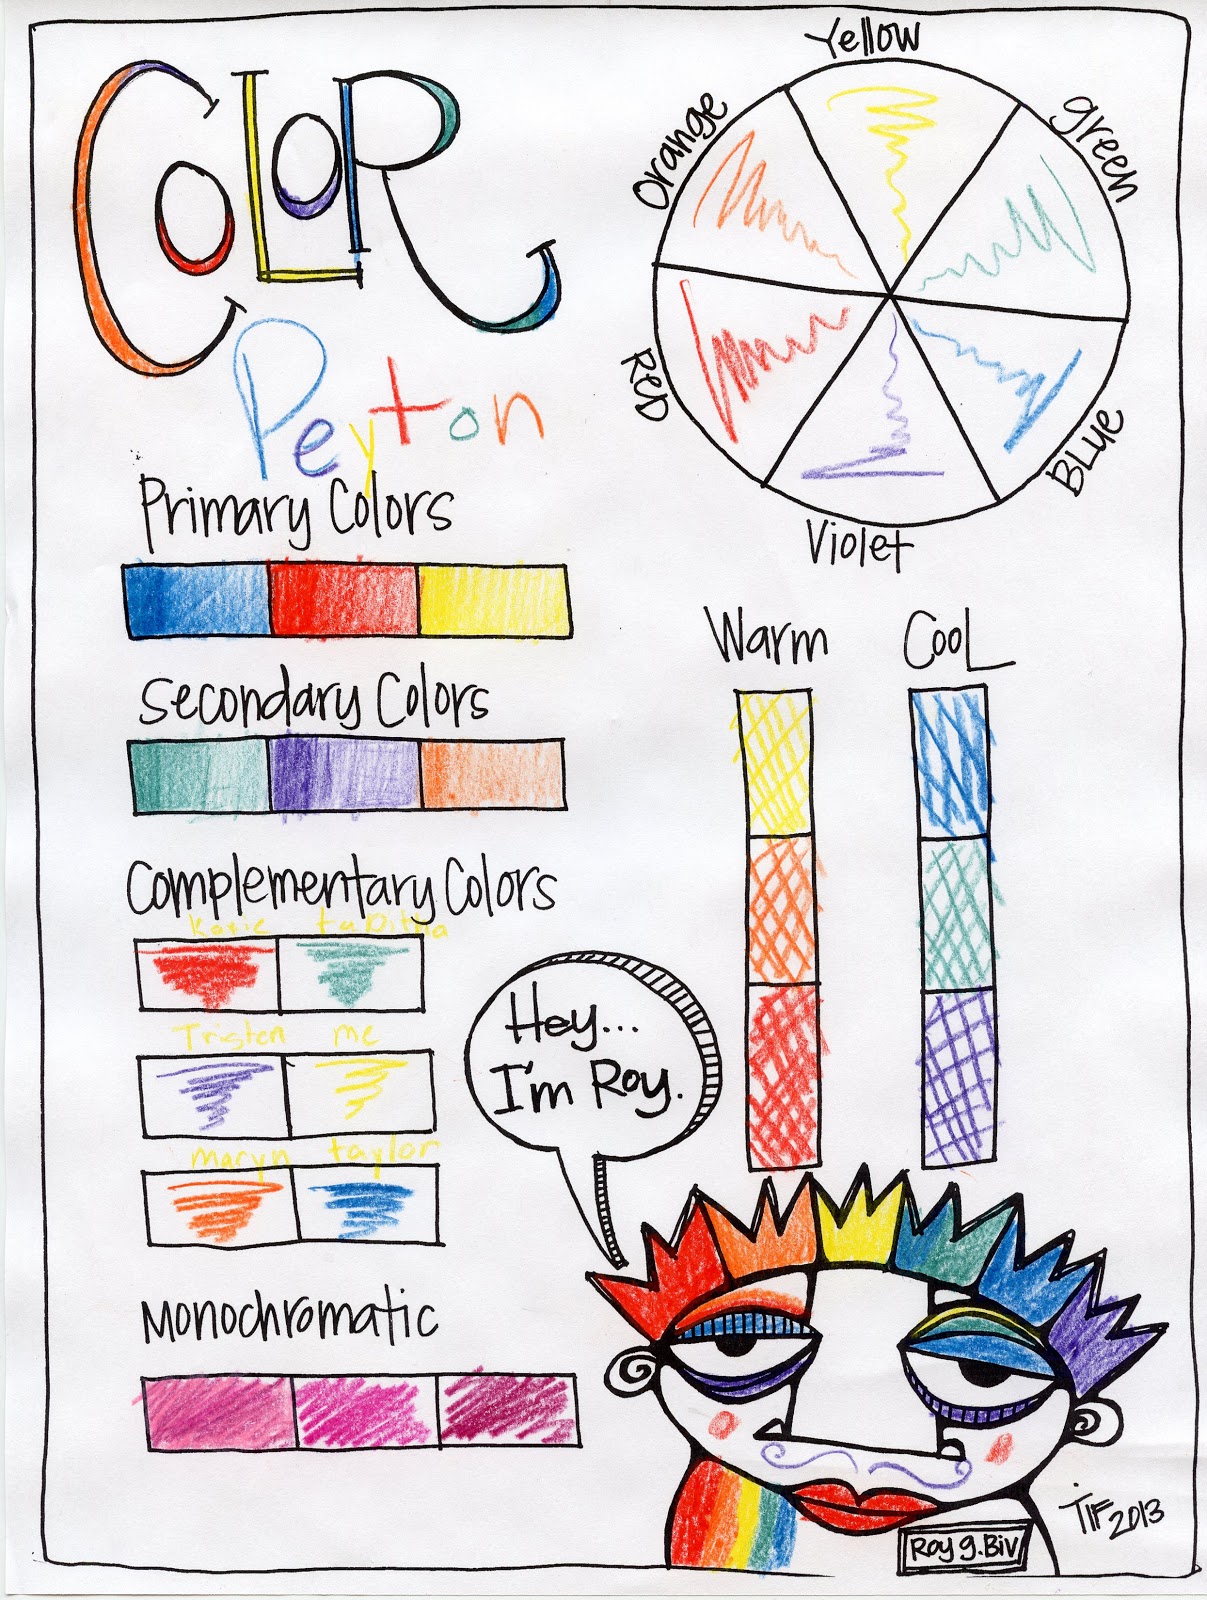 Color
Peyton
Primary Colors
Secondary Colors
Complementary Colors
Tristen me
maryn taylor
Monochromatic
Yellow
green
BLUe
Violet
ReD
Orange
Warm
CooL
Hey...
I'm Roy.
Roy g. Biv
TIF 2013